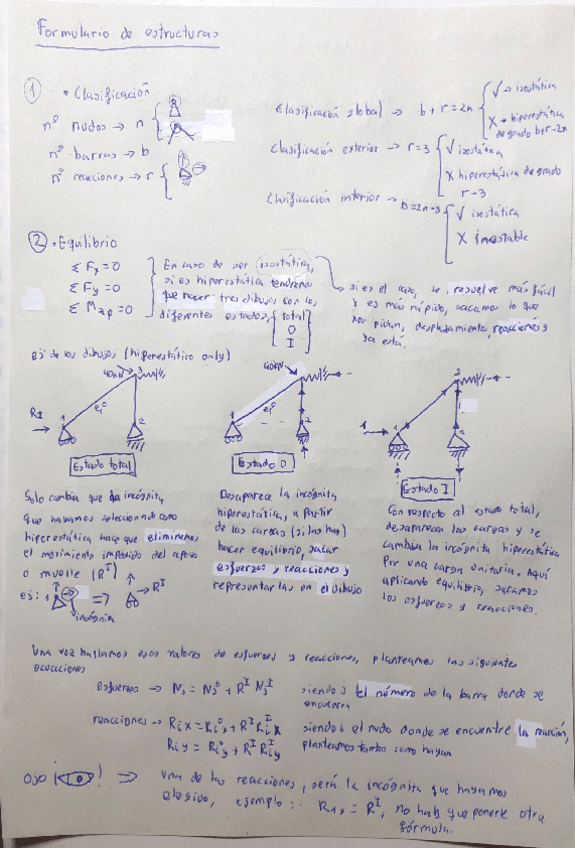 Formulario de estructuras
① • Clasificación
nº nudos → n
nº barras → b
nº reacciones → r
Clasificación global → b + r = 2n
√ → isostática
X → hiperestática
de grado b+r-2n
Clasificación exterior → r = 3
√ isostática
X hiperestática de grado
r-3
Clasificación interior → b = 2n-3
√ isostática
X inestable
② • Equilibrio
Σ Fx = 0
Σ Fy = 0
Σ Mzp = 0
En caso de ser isostática,
si es hiperestática tendremos
que hacer tres dibujos con los
diferentes estados,
total
0
I
si es el caso, se resuelve más fácil
y es más rápido, sacamos lo que
nos pidan, desplazamiento, reacciones y
ya está.
Ej de los dibujos (hiperestático only)
40kN
3
RI
1
2
Estado total
40kN
1
2
Estado 0
1
1
2
3
Estado I
Solo cambia que la incógnita
que hayamos seleccionado como
hiperestática hace que eliminemos
el movimiento impedido del apoyo
o muelle (RI)
ej:
1
=> → RI
incógnita
Desaparece la incógnita
hiperestática, a partir
de las cargas (si las hay)
hacer equilibrio, sacar
esfuerzos y reacciones y
representarlas en el dibujo
Con respecto al estado total,
desaparecen las cargas y se
cambia la incógnita hiperestática
por una carga unitaria. Aquí
aplicando equilibrio, sacamos
los esfuerzos y reacciones.
Una vez hallamos esos valores de esfuerzos y reacciones, planteamos las siguientes
ecuaciones
esfuerzos → Nj = Nj0 + RI NjI siendo j el número de la barra donde se
encuentra
reacciones → Rix = Rix0 + RI RixI siendo i el nudo donde se encuentre la reacción,
Riy = Riy0 + RI RiyI planteamos tantas como hayan
OJO ! ⇒ Una de las reacciones, será la incógnita que hayamos
elegido, ejemplo: R1x = RI, no hay que ponerle otra
fórmula.